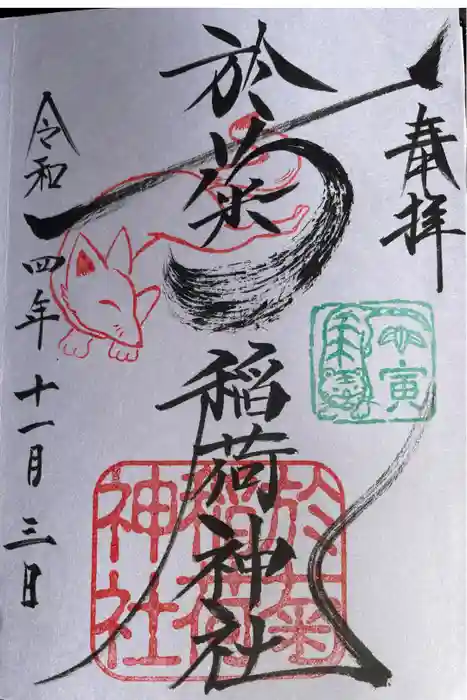 奉拝
於菊稲荷神社
令和四年十一月三日
於菊
稲荷
神社